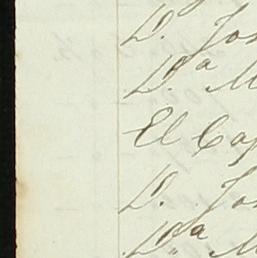 D. Jos
D.ª M
El Cap
D. Jos
D.ª M